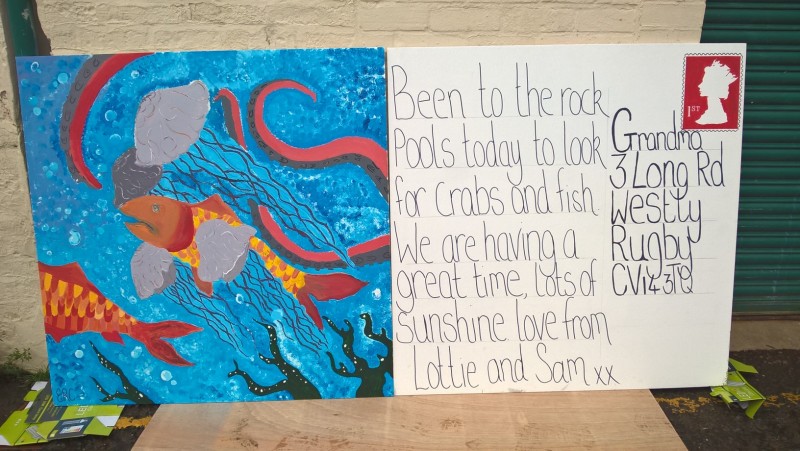 Been to the rock
Pools today to look
for Crabs and fish.
We are having a
great time, lots of
Sunshine love from
Lottie and Sam xx
1ST
Grandma
3 Long Rd
Westly
Rugby
CV14 3TQ